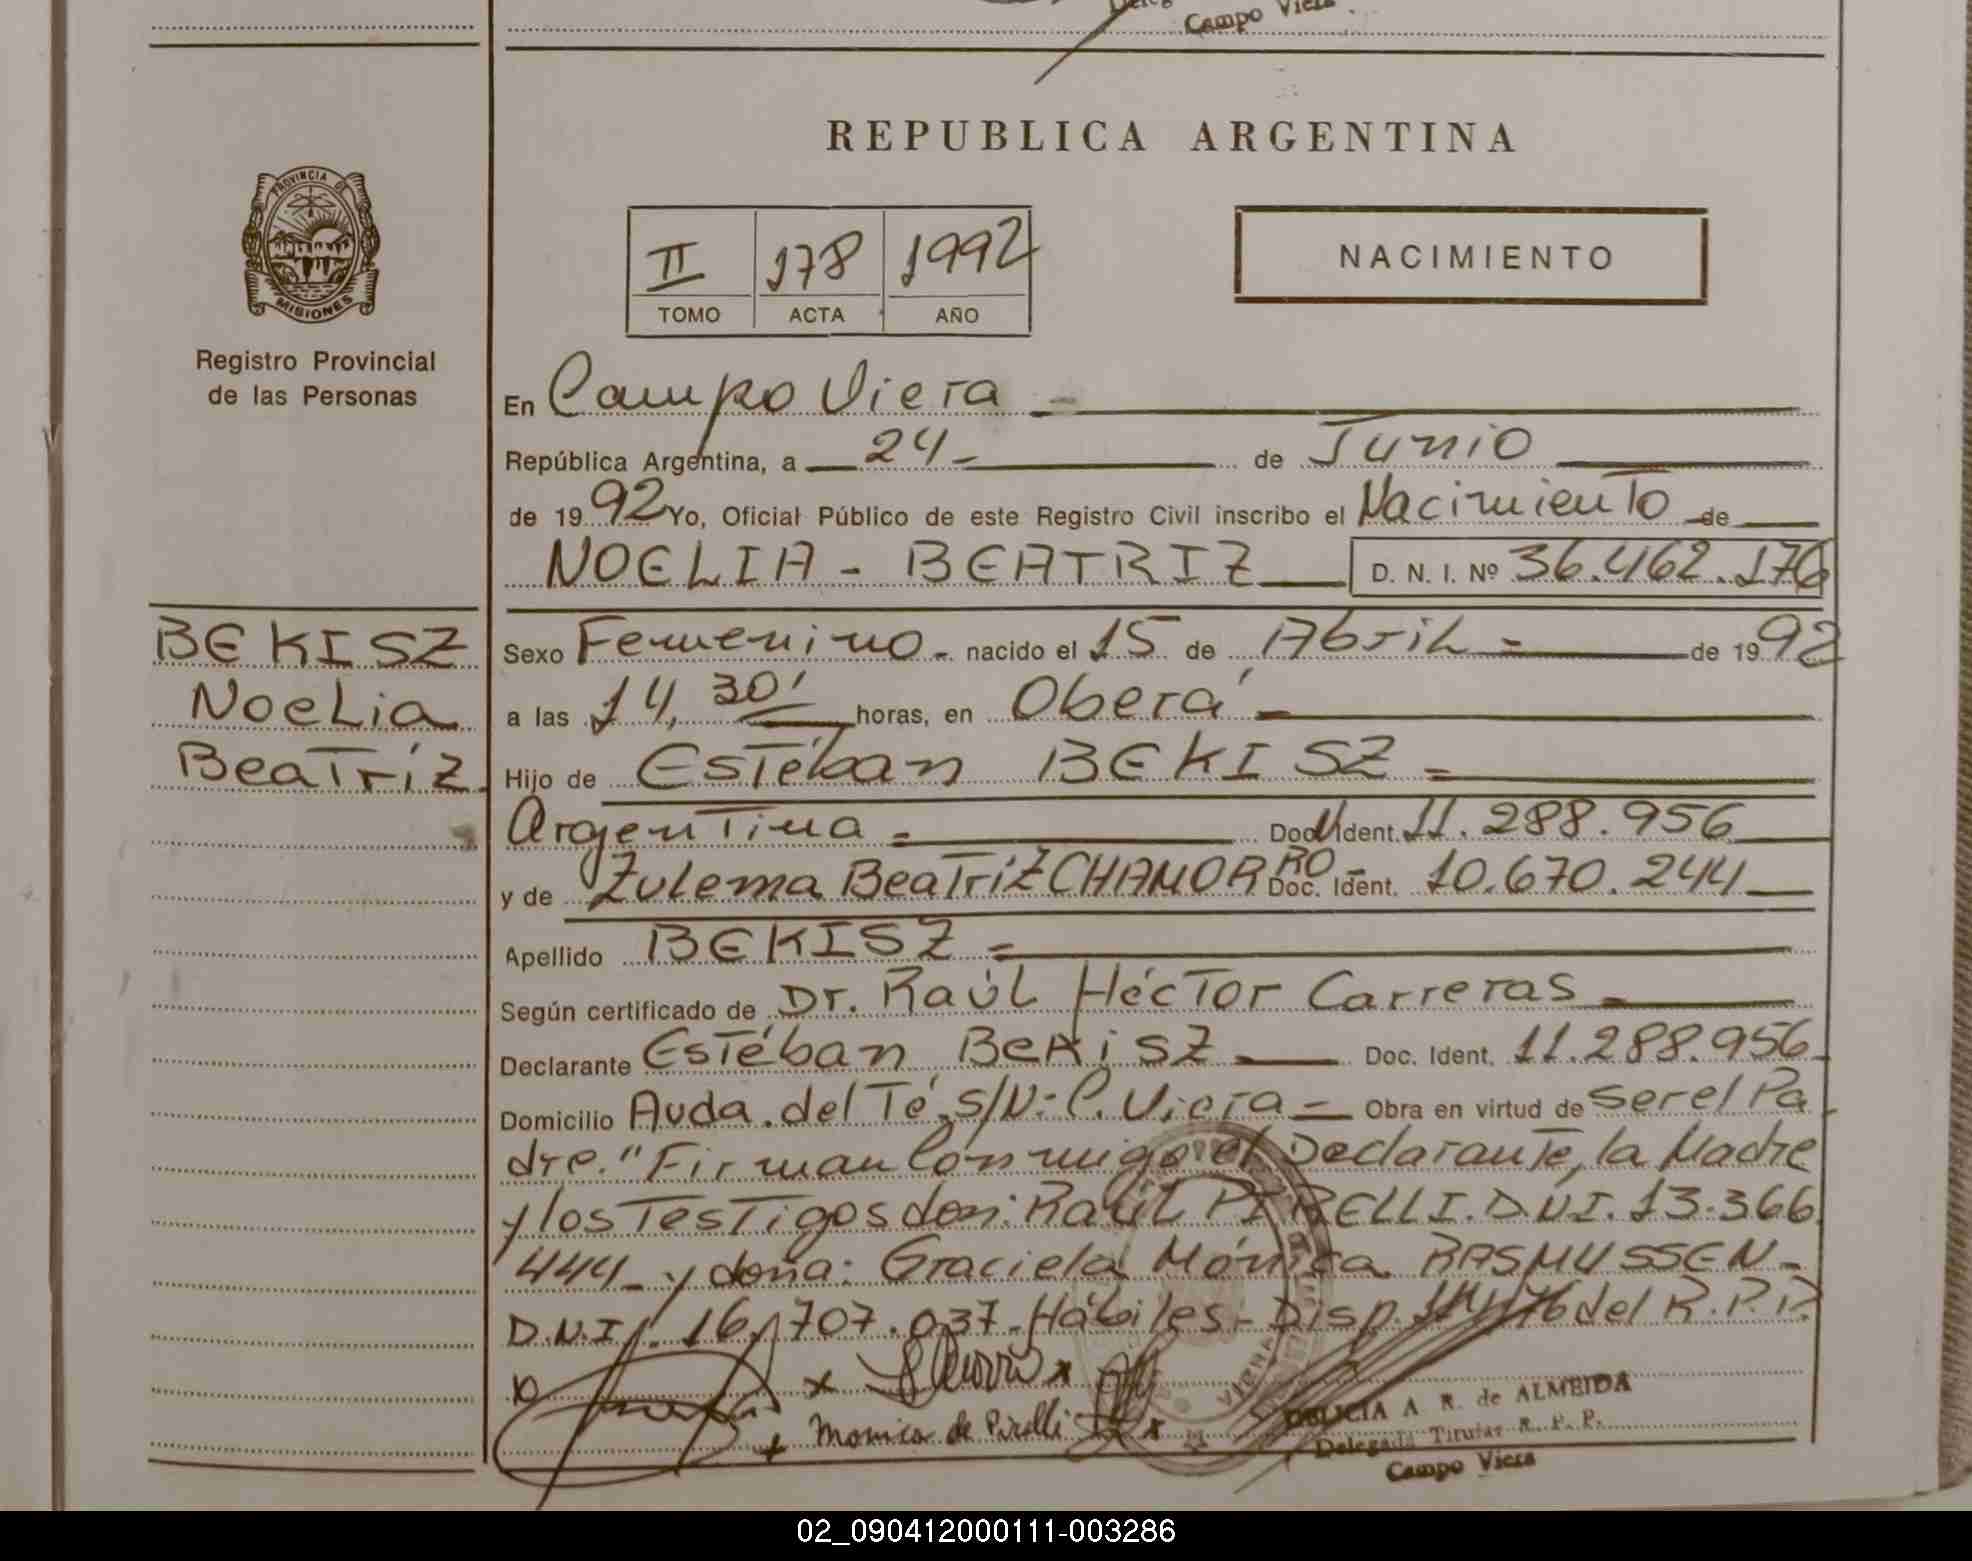 Campo Viera
REPUBLICA ARGENTINA
PROVINCIA DE
MISIONES
Registro Provincial
de las Personas
II 178 1992
TOMO ACTA AÑO
NACIMIENTO
En Campo Viera
República Argentina, a 24 de Junio
de 1992 Yo, Oficial Público de este Registro Civil inscribo el Nacimiento de
NOELIA - BEATRIZ D. N. I. Nº 36.462.176
BEKISZ
Noelia
Beatríz
Sexo Femenino - nacido el 15 de Abril = de 1992
a las 14, 30' horas, en Oberá
Hijo de Estéban BEKISZ =
Argentina = Doc. Ident. 11.288.956
y de Zulema BeatriZ CHAMORRO Doc. Ident. 10.670.244
Apellido BEKISZ =
Según certificado de Dr. Raúl Héctor Carreras
Declarante Estéban BeKisZ Doc. Ident. 11.288.956
Domicilio Avda. del Té s/N- C. Viera - Obra en virtud de ser el Pa
dre." Firman Cónmigo el Declarante, la Madre
y los Testigos don: Raúl PIRELLI. D.N.I. 13.366.
444 - y doña: Graciela Mónica RASMUSSEN -
D.N.I. 16.707.037 - Hábiles - Disp. 14/76 del R.P.P.
Monica de Pirelli
VIERA
DELICIA A R. de ALMEIDA
Delegada Titular R. P. P.
Campo Viera
02_090412000111-003286